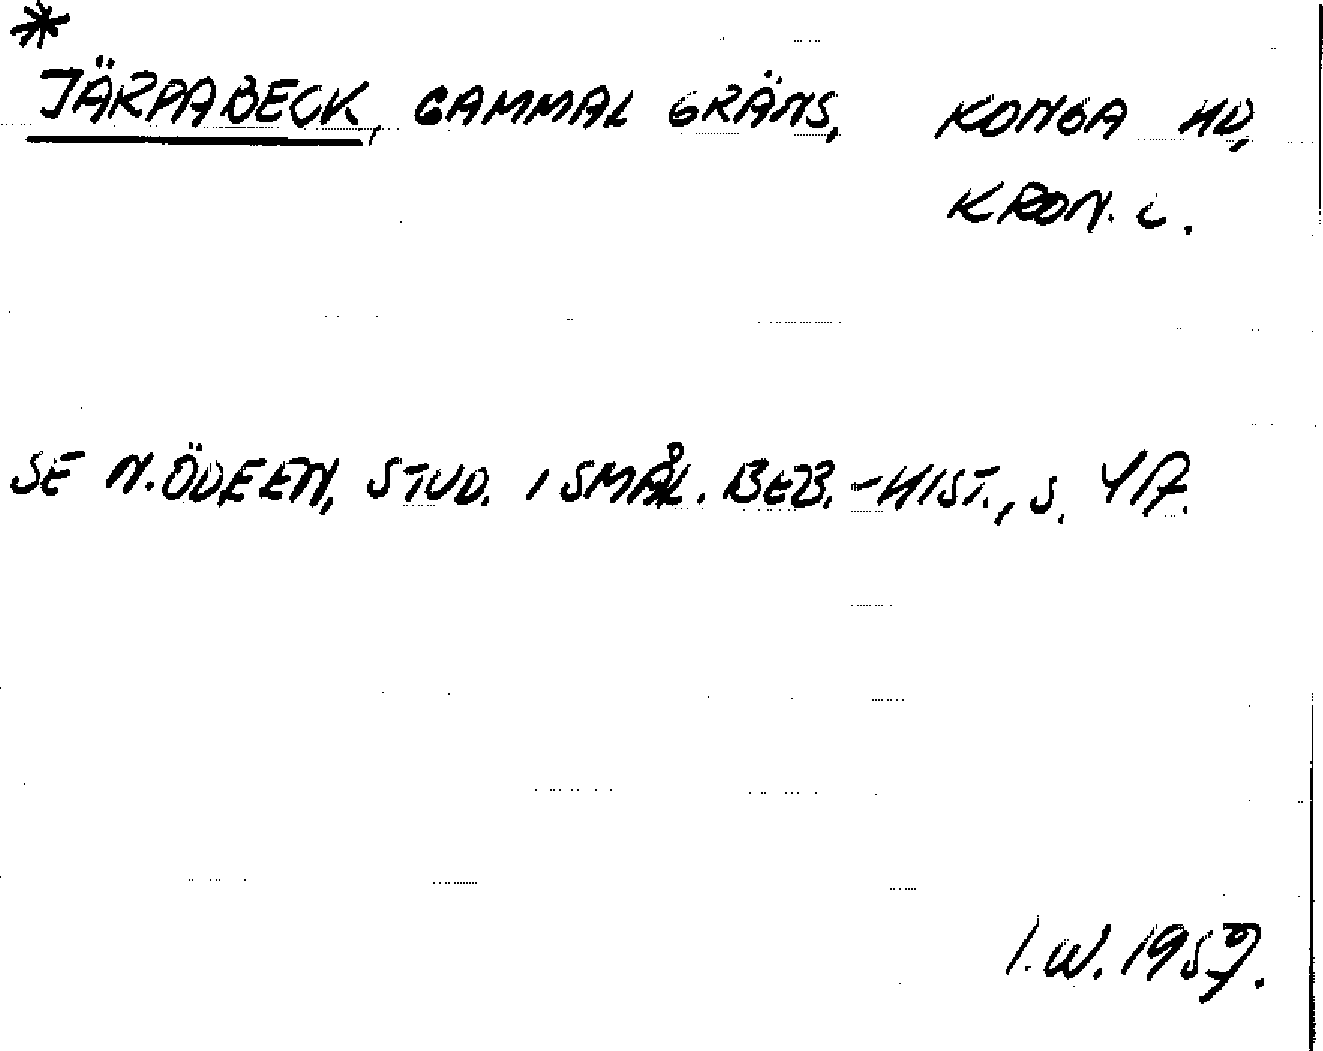 *
JÄRPABECK, GAMMAL GRÄNS, KONGA HD,
KRON. L.
SE N. ÖDEEN, STUD. I SMÅL. BEB.-HIST., S. 417.
I.W. 1959.